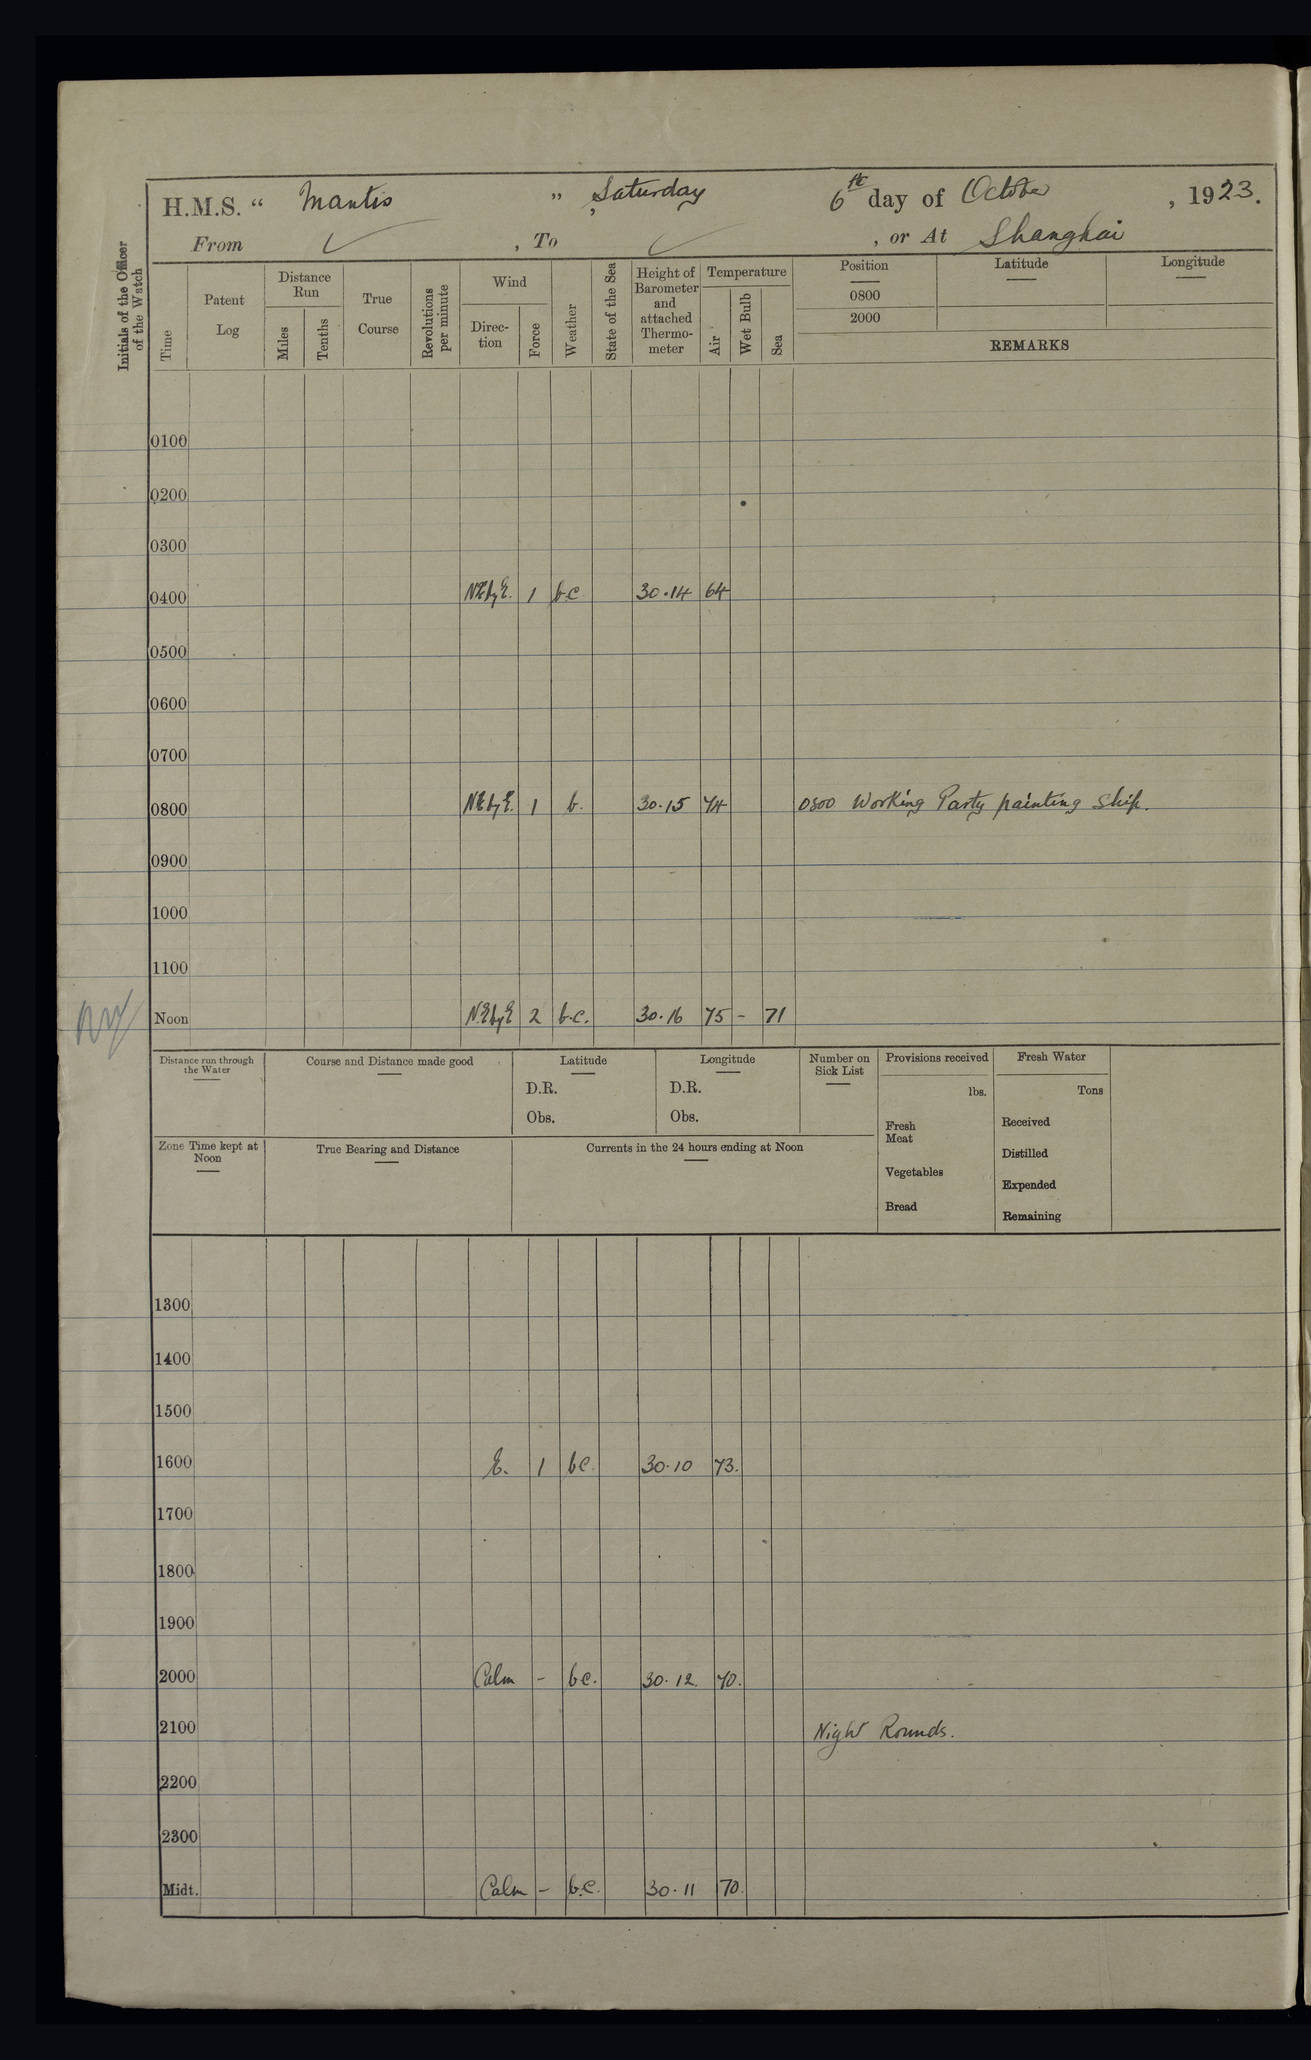 H.M.S. “ Mantis ” Saturday 6th day of October, 1923.
From ✓, To ✓, or At Shanghai
Initials of the Officer of the Watch
Time
Patent Log
Distance Run
Miles
Tenths
True Course
Revolutions per minute
Wind
Direc-tion
Force
Weather
State of the Sea
Height of Barometer and attached Thermo-meter
Temperature
Air
Wet Bulb
Sea
Position
0800
2000
Latitude
Longitude
REMARKS
0100
0200
0300
0400 NEbyE. 1 bc 30.14 64
0500
0600
0700
0800 NEbyE. 1 b. 30.15 74 0800 Working Party painting Ship.
0900
1000
1100
Noon NEbyE 2 b.c. 30.16 75 - 71
Distance run through the Water
Course and Distance made good
Latitude
D.R.
Obs.
Longitude
D.R.
Obs.
Number on Sick List
Provisions received
lbs.
Fresh Meat
Vegetables
Bread
Fresh Water
Tons
Received
Distilled
Expended
Remaining
Zone Time kept at Noon
True Bearing and Distance
Currents in the 24 hours ending at Noon
1300
1400
1500
1600 E. 1 bc. 30.10 73.
1700
1800
1900
2000 Calm - bc. 30.12. 70.
2100 Night Rounds.
2200
2300
Midt. Calm - b.c. 30.11 70.